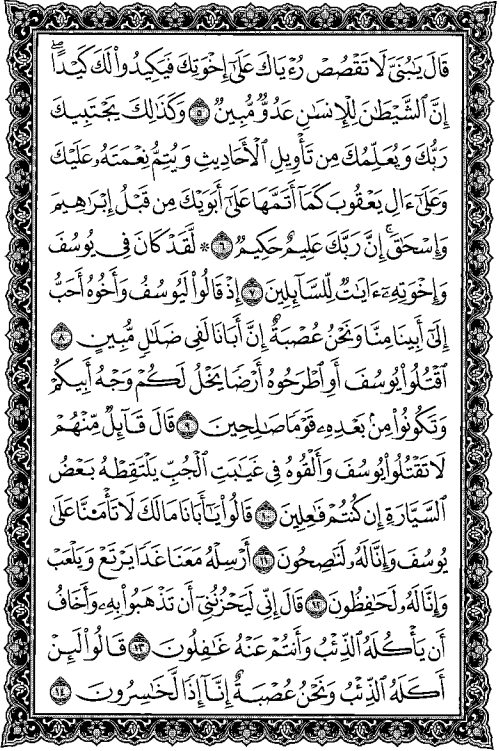 قَالَ يَـٰبُنَىَّ لَا تَقْصُصْ رُءْيَاكَ عَلَىٰٓ إِخْوَتِكَ فَيَكِيدُوا۟ لَكَ كَيْدًا ۖ
إِنَّ ٱلشَّيْطَـٰنَ لِلْإِنسَـٰنِ عَدُوٌّ مُّبِينٌ ٥ وَكَذَٰلِكَ يَجْتَبِيكَ
رَبُّكَ وَيُعَلِّمُكَ مِن تَأْوِيلِ ٱلْأَحَادِيثِ وَيُتِمُّ نِعْمَتَهُۥ عَلَيْكَ
وَعَلَىٰٓ ءَالِ يَعْقُوبَ كَمَآ أَتَمَّهَا عَلَىٰٓ أَبَوَيْكَ مِن قَبْلُ إِبْرَٰهِيمَ
وَإِسْحَـٰقَ ۚ إِنَّ رَبَّكَ عَلِيمٌ حَكِيمٌ ٦ * لَّقَدْ كَانَ فِى يُوسُفَ
وَإِخْوَتِهِۦٓ ءَايَـٰتٌ لِّلسَّآئِلِينَ ٧ إِذْ قَالُوا۟ لَيُوسُفُ وَأَخُوهُ أَحَبُّ
إِلَىٰٓ أَبِينَا مِنَّا وَنَحْنُ عُصْبَةٌ إِنَّ أَبَانَا لَفِى ضَلَـٰلٍ مُّبِينٍ ٨
ٱقْتُلُوا۟ يُوسُفَ أَوِ ٱطْرَحُوهُ أَرْضًا يَخْلُ لَكُمْ وَجْهُ أَبِيكُمْ
وَتَكُونُوا۟ مِنۢ بَعْدِهِۦ قَوْمًا صَـٰلِحِينَ ٩ قَالَ قَآئِلٌ مِّنْهُمْ
لَا تَقْتُلُوا۟ يُوسُفَ وَأَلْقُوهُ فِى غَيَـٰبَتِ ٱلْجُبِّ يَلْتَقِطْهُ بَعْضُ
ٱلسَّيَّارَةِ إِن كُنتُمْ فَـٰعِلِينَ ١٠ قَالُوا۟ يَـٰٓأَبَانَا مَا لَكَ لَا تَأْمَ۫نَّا عَلَىٰ
يُوسُفَ وَإِنَّا لَهُۥ لَنَـٰصِحُونَ ١١ أَرْسِلْهُ مَعَنَا غَدًا يَرْتَعْ وَيَلْعَبْ
وَإِنَّا لَهُۥ لَحَـٰفِظُونَ ١٢ قَالَ إِنِّى لَيَحْزُنُنِىٓ أَن تَذْهَبُوا۟ بِهِۦ وَأَخَافُ
أَن يَأْكُلَهُ ٱلذِّئْبُ وَأَنتُمْ عَنْهُ غَـٰفِلُونَ ١٣ قَالُوا۟ لَئِنْ
أَكَلَهُ ٱلذِّئْبُ وَنَحْنُ عُصْبَةٌ إِنَّآ إِذًا لَّخَـٰسِرُونَ ١٤